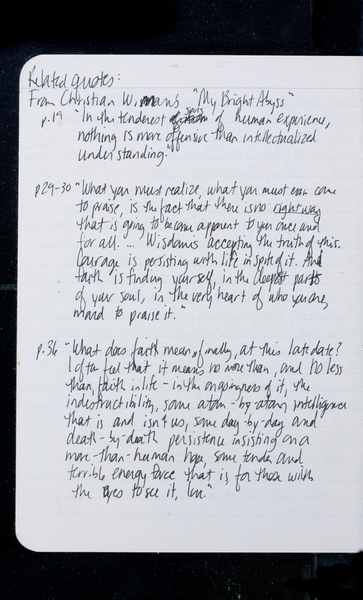 Related quotes:
From Christian Wiman's "My Bright Abyss"
p.19 "In the tenderest spots of human experience,
nothing is more offensive than intellectualized
understanding."
p29-30 "What you must realize, what you must even come
to praise, is the fact that there is no right way
that is going to become apparent to you once and
for all. ... Wisdom is accepting the truth of this.
Courage is persisting with life in spite of it. And
faith is finding yourself, in the deepest part
of your soul, in the very heart of who you are,
moved to praise it."
p.36 "What does faith mean, finally, at this late date?
I often feel that it means no more than, and no less
than, faith in life - in the ongoingness of it, the
indestructibility, some atom-by-atom intelligence
that is and isn't us, some day-by-day and
death-by-death persistence insisting on a
more-than-human hope, some tender and
terrible energy force that is, for those with
the eyes to see it, love."